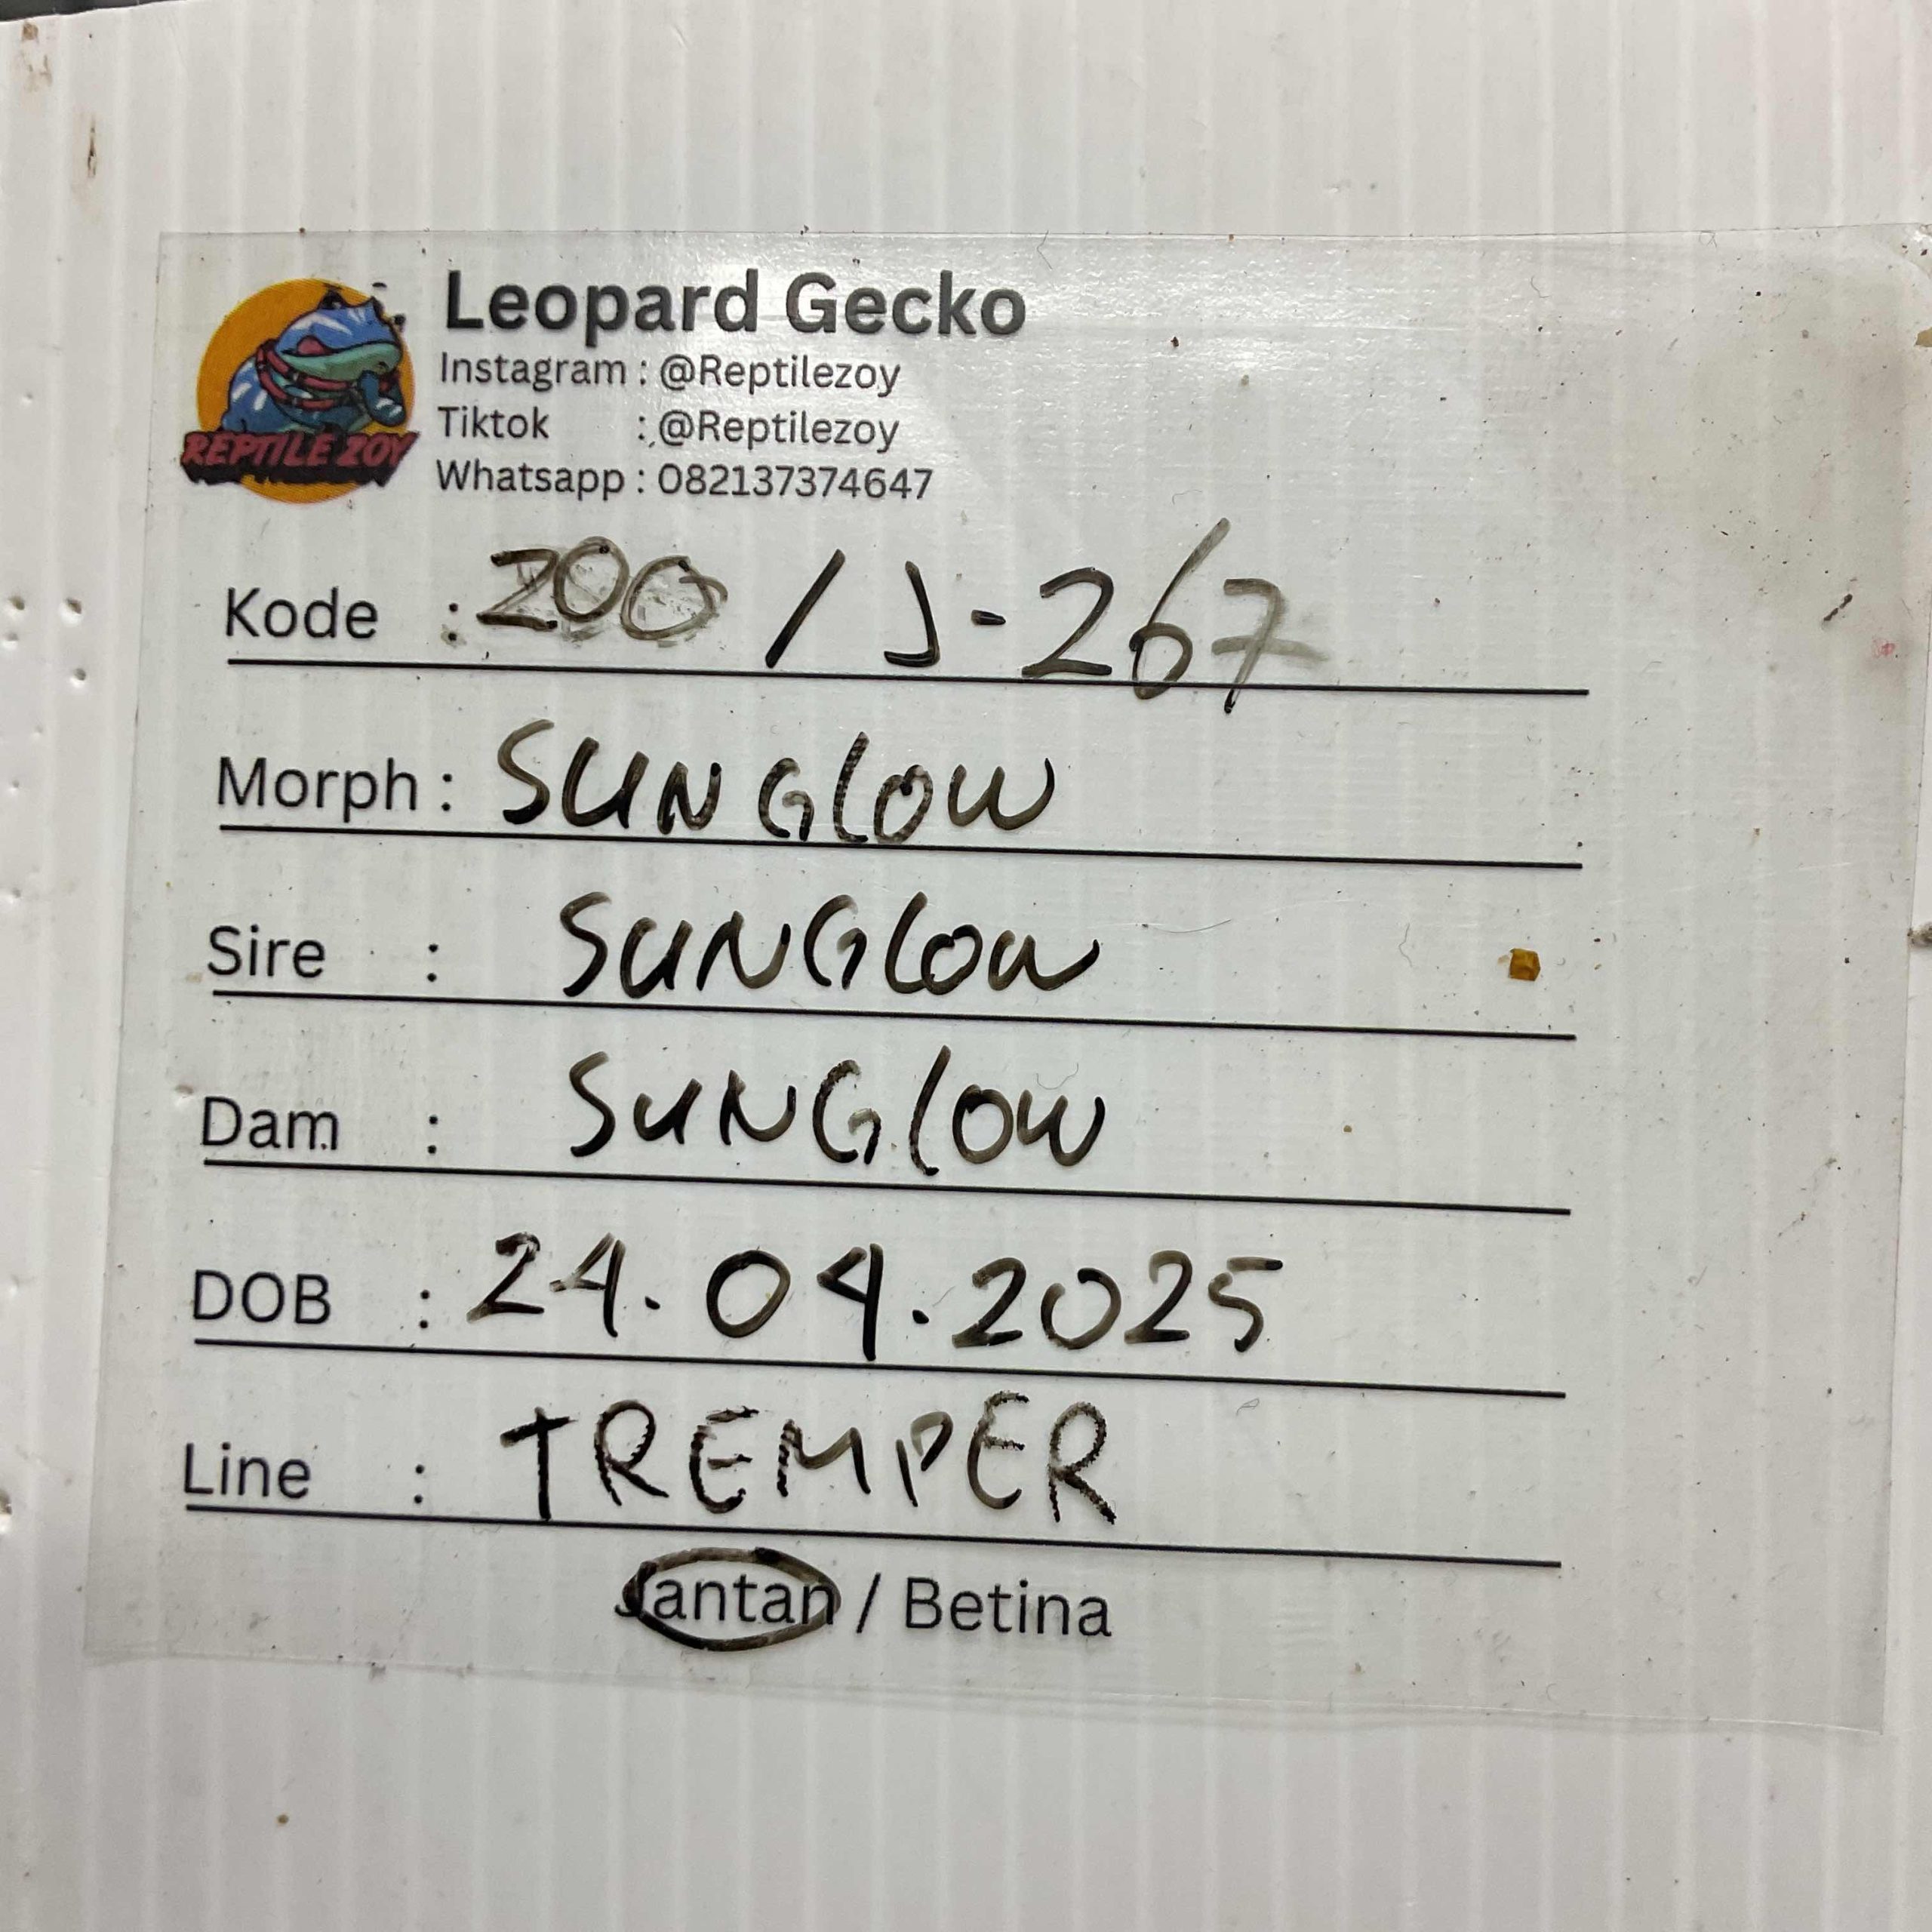 REPTILE ZOY
Leopard Gecko
Instagram : @Reptilezoy
Tiktok : @Reptilezoy
Whatsapp : 082137374647
Kode : 200 / J-267
Morph : SUNGLOW
Sire : SUNGLOW
Dam : SUNGLOW
DOB : 24.04.2025
Line : TREMPER
Jantan / Betina